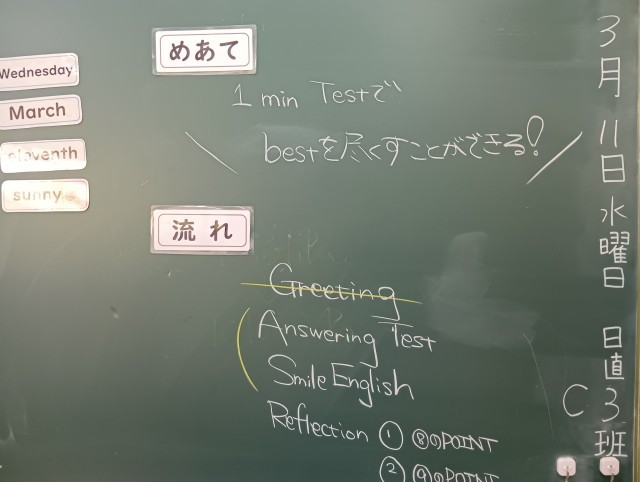 Wednesday
March
eleventh
sunny
めあて
1 min Testで
\ bestを尽くすことができる! /
流れ
Greeting
Answering Test
Smile English
Reflection ① ⑧のPOINT
② ⑨のPOINT
3月11日水曜日 日直3班
C